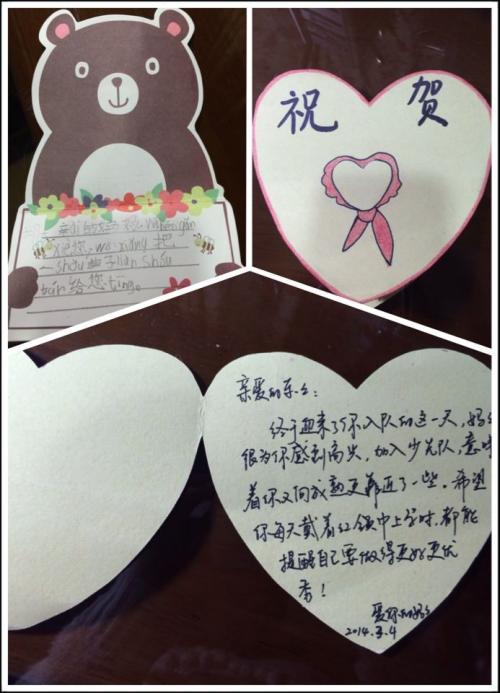 亲
您,wo xiang 把
一 shǒu 曲子 tán shòu
给您 tīng。
祝 贺
亲爱的乐乐:
终于迎来了你入队的这一天,妈妈
很为你感到高兴,加入少先队,意味
着你又向成熟更靠近了一些。希望
你每天戴着红领巾上学时,都能
提醒自己要做得更好更优
秀!
爱你的妈妈
2014.3.4